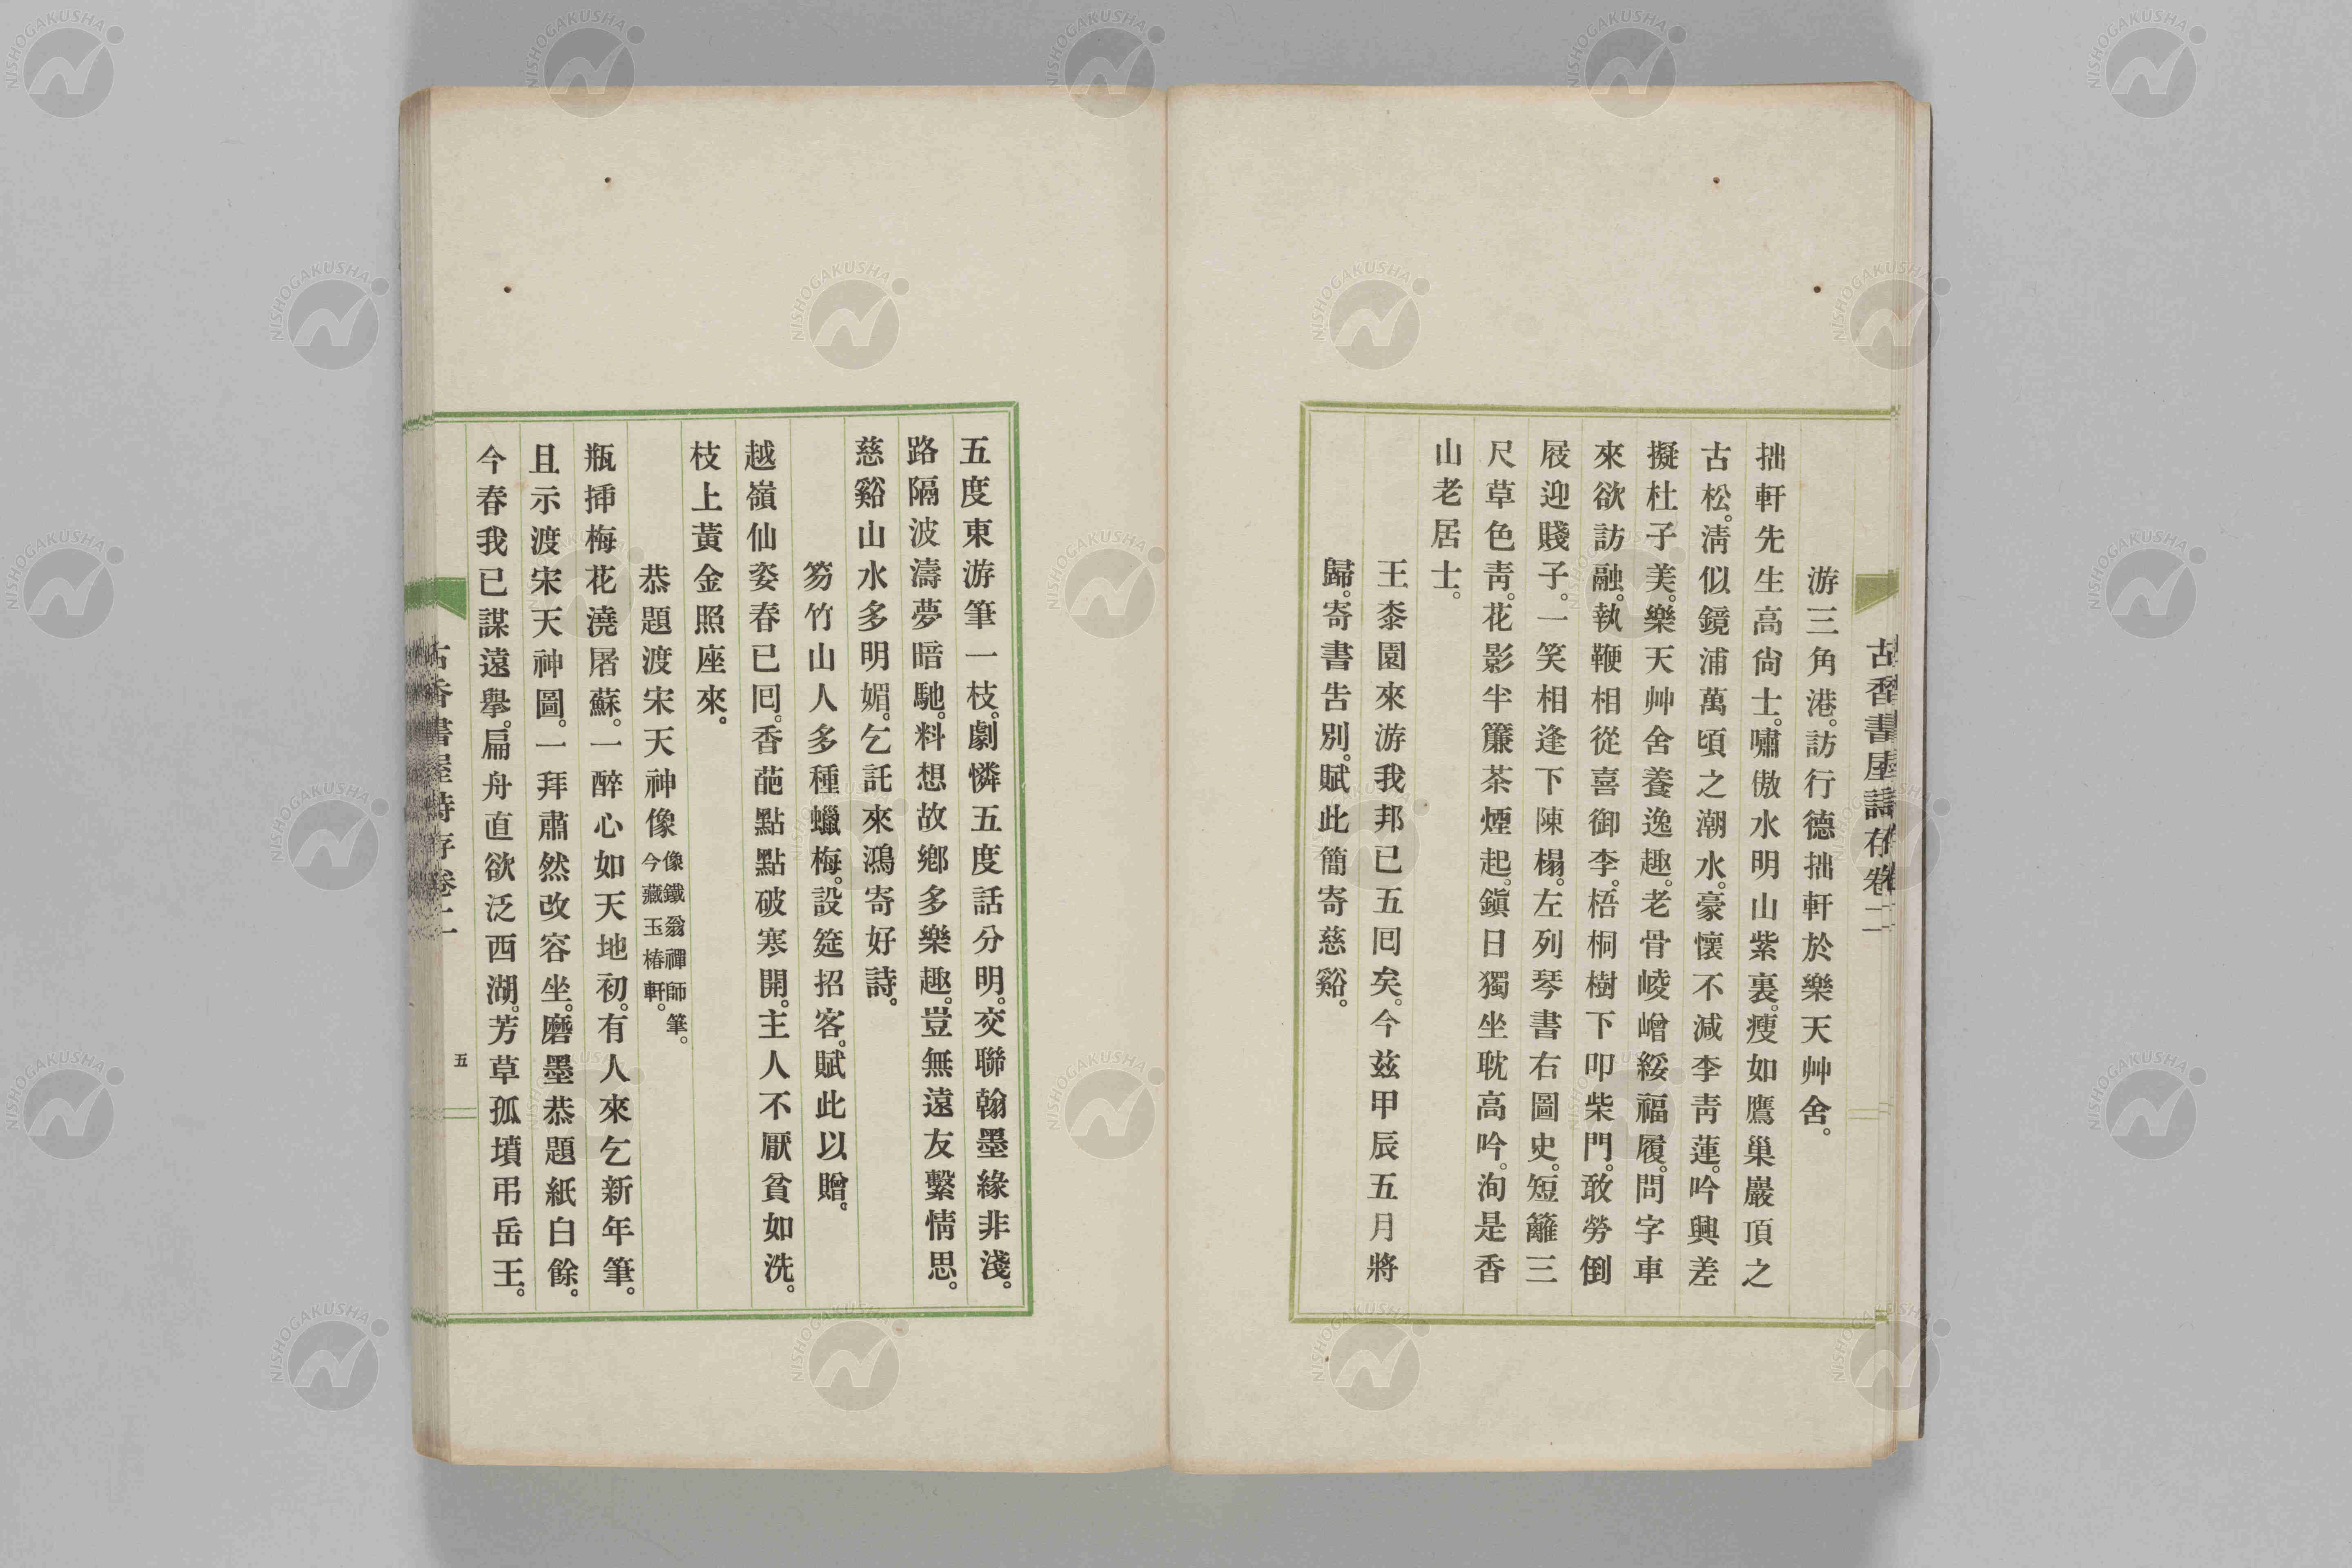 古香書屋詩存卷二
游三角港。訪行德拙軒於樂天艸舍。
拙軒先生高尙士。嘯傲水明山紫裏。瘦如鷹巢巖頂之
古松。淸似鏡浦萬頃之潮水。豪懷不減李靑蓮。吟興差
擬杜子美。樂天艸舍養逸趣。老骨崚嶒綏福履。問字車
來欲訪融。執鞭相從喜御李。梧桐樹下叩柴門。敢勞倒
屐迎賤子。一笑相逢下陳榻。左列琴書右圖史。短籬三
尺草色靑。花影半簾茶煙起。鎭日獨坐耽高吟。洵是香
山老居士。
王桼園來游我邦已五囘矣。今玆甲辰五月將
歸。寄書吿別。賦此簡寄慈谿。
五度東游筆一枝。劇憐五度話分明。交聯翰墨緣非淺。
路隔波濤夢暗馳。料想故鄕多樂趣。豈無遠友繫情思。
慈谿山水多明媚。乞託來鴻寄好詩。
笏竹山人多種蠟梅。設筵招客。賦此以贈。
越嶺仙姿春已囘。香葩點點破寒開。主人不厭貧如洗。
枝上黃金照座來。
恭題渡宋天神像像鐵翁禪師筆。今藏玉椿軒。
瓶揷梅花澆屠蘇。一醉心如天地初。有人來乞新年筆。
且示渡宋天神圖。一拜肅然改容坐。磨墨恭題紙白餘。
今春我已謀遠擧。扁舟直欲泛西湖。芳草孤墳弔岳王。
古香書屋詩存卷二
五
NISHOGAKUSHA